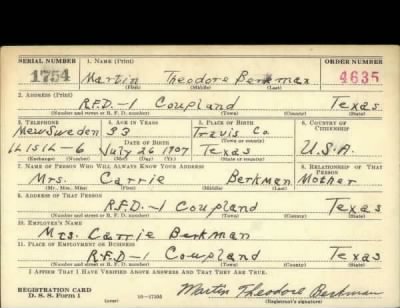 SERIAL NUMBER 1. NAME (Print) ORDER NUMBER
1754 Martin Theodore Berkman 4635
(First) (Middle) (Last)
2. ADDRESS (Print)
R.F.D.-1 Coupland Texas
(Number and street or R. F. D. number) (Town) (County) (State)
3. TELEPHONE 4. AGE IN YEARS 5. PLACE OF BIRTH 6. COUNTRY OF CITIZENSHIP
New Sweden 33 Travis Co.
DATE OF BIRTH (Town or county)
1L1S1L-6 July 26 1907 Texas U.S.A.
(Exchange) (Number) (Mo.) (Day) (Yr.) (State or country)
7. NAME OF PERSON WHO WILL ALWAYS KNOW YOUR ADDRESS 8. RELATIONSHIP OF THAT PERSON
Mrs. Carrie Berkman Mother
(Mr., Mrs., Miss) (First) (Middle) (Last)
9. ADDRESS OF THAT PERSON
R.F.D.-1 Coupland Texas
(Number and street or R. F. D. number) (Town) (County) (State)
10. EMPLOYER'S NAME
Mrs. Carrie Berkman
11. PLACE OF EMPLOYMENT OR BUSINESS
R.F.D-1 Coupland Texas
(Number and street or R. F. D. number) (Town) (County) (State)
I AFFIRM THAT I HAVE VERIFIED ABOVE ANSWERS AND THAT THEY ARE TRUE.
REGISTRATION CARD
D. S. S. Form 1 (over) 16-17105 Martin Theodore Berkman
(Registrant's signature)